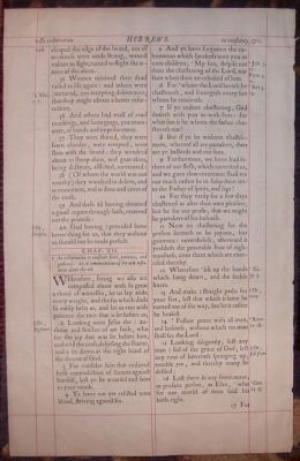 HEBREWS.
escaped the edge of the sword, out of
weakness were made strong, waxed
valiant in fight, turned to flight the
armies of the aliens.
35 Women received their dead
raised to life again: and others were
tortured, not accepting deliverance,
that they might obtain a better
36 And others had trial of cruel
mockings, and scourgings, yea
37 They were stoned, they were
sawn asunder, were tempted, were
slain with the sword: they wandered
about in sheep-skins, and goat-skins,
being destitute, afflicted, tormented:
38 (Of whom the world was not
worthy:) they wandered in deserts, and
in mountains, and in dens and caves of
the earth.
39 And these all having obtained
a good report through faith, received
not the promise:
40 God having provided some
better thing for us, that they without
us should not be made perfect.
CHAP. XII.
Wherefore, seeing we also are
compassed about with so great
a cloud of witnesses, let us lay aside
every weight, and the sin which doth
so easily beset us, and let us run with
patience the race that is set before us,
2 Looking unto Jesus the
and finisher of our faith, who
for the joy that was set before him,
endured the cross, despising the shame,
and is set down at the right hand of
the throne of God.
3 For consider him that endured
such contradiction of sinners against
himself, lest ye be wearied and faint
in your minds.
4 Ye have not yet resisted unto
blood, striving against sin.
5 And ye have forgotten the
which speaketh unto you as
unto children, My son, despise not
thou the chastening of the Lord, nor
faint when thou art rebuked of him.
6 For whom the Lord loveth he
chasteneth, and scourgeth every son
whom he receiveth.
7 If ye endure chastening, God
dealeth with you as with sons: for
what son is he whom the father
not?
8 But if ye be without
whereof all are partakers, then
are ye bastards, and not sons.
9 Furthermore, we have had
of our flesh, which corrected us,
and we gave them reverence: shall we
not much rather be in subjection
to the Father of spirits, and live?
10 For they verily for a few days
chastened us after their own pleasure,
but he for our profit, that we might
be partakers of his holiness.
11 Now no chastening for the
present seemeth to be joyous, but
grievous: nevertheless, afterward it
yieldeth the peaceable fruit of
unto them which are
thereby.
12 Wherefore lift up the hands
which hang down, and the feeble
knees.
13 And make straight paths for
your feet, lest that which is lame be
turned out of the way, but let it rather
be healed.
14 Follow peace with all men,
and holiness, without which no man
shall see the Lord:
15 Looking diligently, lest any
man fail of the grace of God, lest
any root of bitterness springing up,
trouble you, and thereby many be
defiled:
16 Lest there be any fornicator,
or profane person, as Esau, who
for one morsel of meat sold his
birth-right.
17 For